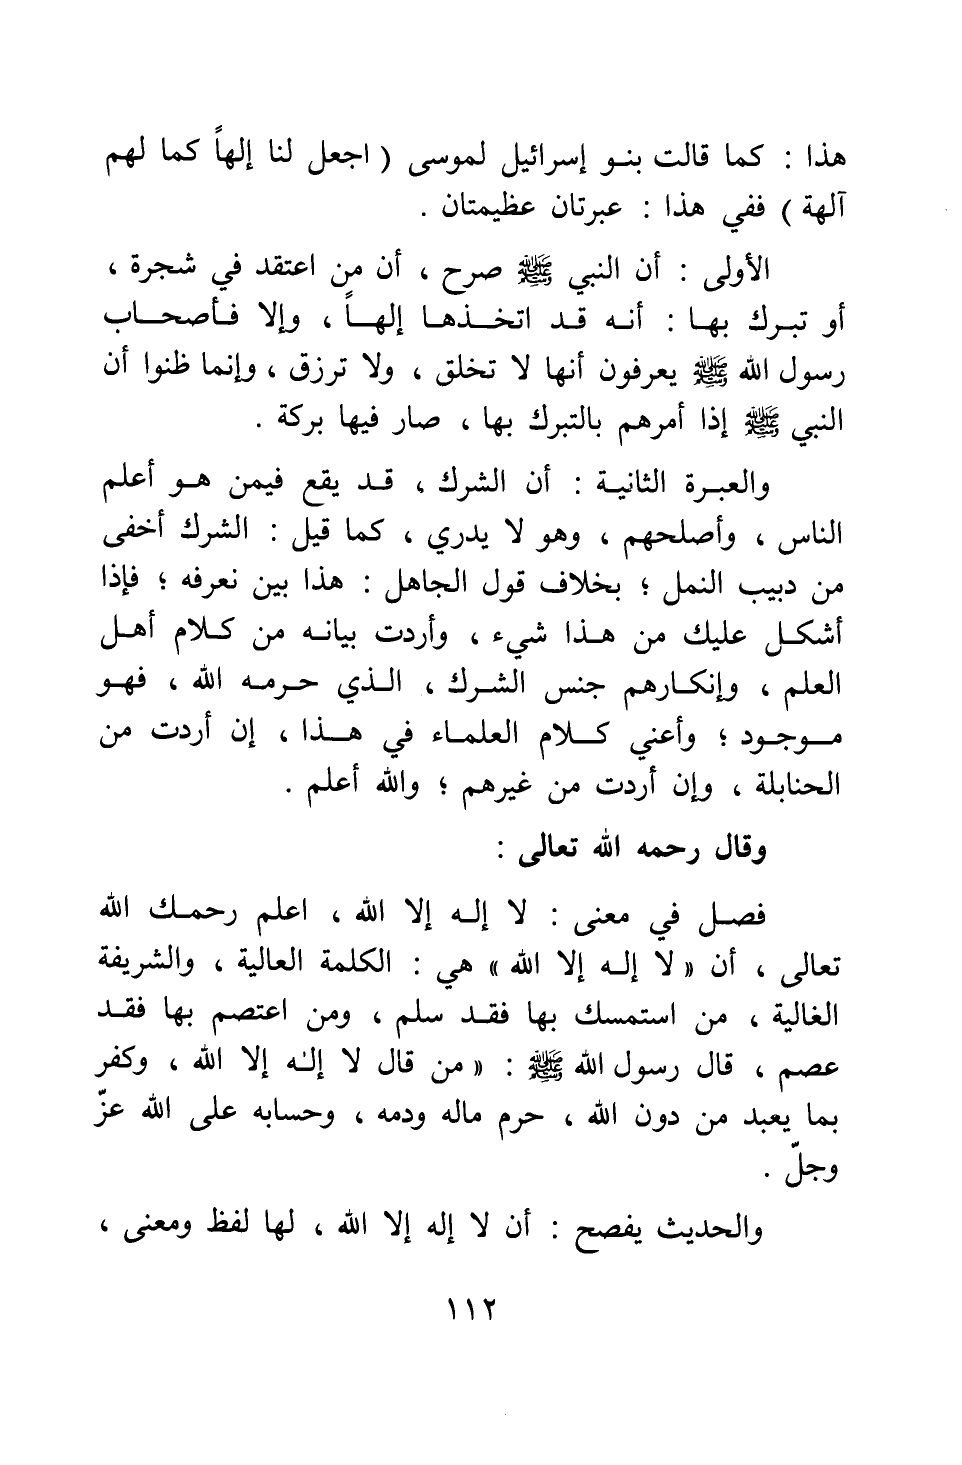 هذا : كما قالت بنو إسرائيل لموسى ( اجعل لنا إلهاً كما لهم
آلهة ) ففي هذا : عبرتان عظيمتان .
الأولى : أن النبي ﷺ صرح ، أن من اعتقد في شجرة ،
أو تبرك بها : أنه قد اتخذها إلهاً ، وإلا فأصحاب
رسول الله ﷺ يعرفون أنها لا تخلق ، ولا ترزق ، وإنما ظنوا أن
النبي ﷺ إذا أمرهم بالتبرك بها ، صار فيها بركة .
والعبرة الثانية : أن الشرك ، قد يقع فيمن هو أعلم
الناس ، وأصلحهم ، وهو لا يدري ، كما قيل : الشرك أخفى
من دبيب النمل ؛ بخلاف قول الجاهل : هذا بين نعرفه ؛ فإذا
أشكل عليك من هذا شيء ، وأردت بيانه من كلام أهل
العلم ، وإنكارهم جنس الشرك ، الذي حرمه الله ، فهو
موجود ؛ وأعني كلام العلماء في هذا ، إن أردت من
الحنابلة ، وإن أردت من غيرهم ؛ والله أعلم .
وقال رحمه الله تعالى :
فصل في معنى : لا إله إلا الله ، اعلم رحمك الله
تعالى ، أن « لا إله إلا الله » هي : الكلمة العالية ، والشريفة
الغالية ، من استمسك بها فقد سلم ، ومن اعتصم بها فقد
عصم ، قال رسول الله ﷺ : « من قال لا إله إلا الله ، وكفر
بما يعبد من دون الله ، حرم ماله ودمه ، وحسابه على الله عزّ
وجلّ .
والحديث يفصح : أن لا إله إلا الله ، لها لفظ ومعنى ،
١١٢